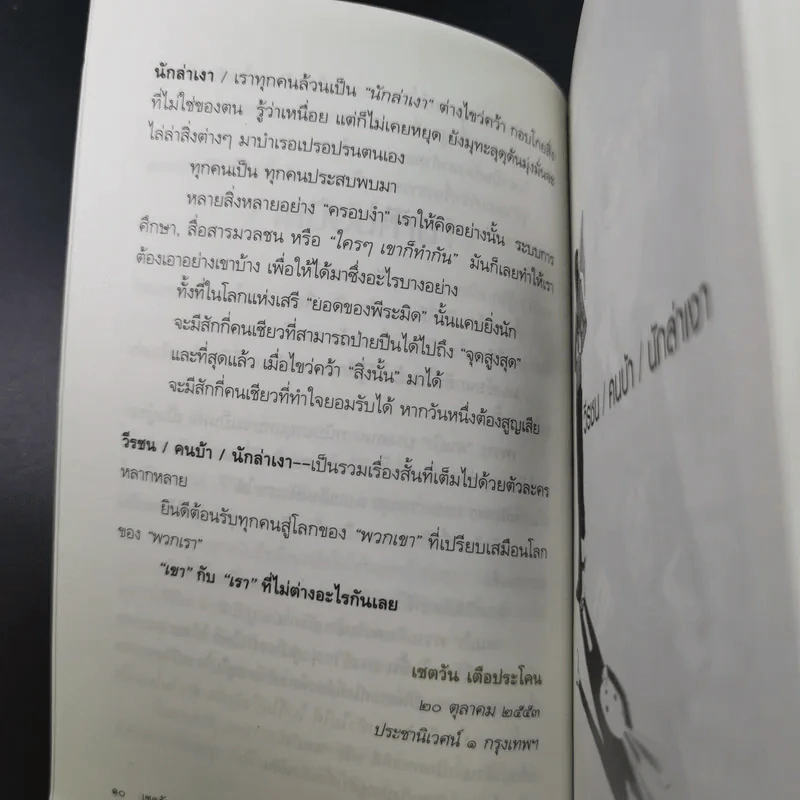 นักล่าเงา / เราทุกคนล้วนเป็น “นักล่าเงา” ต่างไขว่คว้า กอบโกยสิ่ง
ที่ไม่ใช่ของตน รู้ว่าเหนื่อย แต่ก็ไม่เคยหยุด ยังมุทะลุดุดันมุ่งมั่นจะ
ไล่ล่าสิ่งต่างๆ มาบำเรอเปรอปรนตนเอง
ทุกคนเป็น ทุกคนประสบพบมา
หลายสิ่งหลายอย่าง “ครอบงำ” เราให้คิดอย่างนั้น ระบบการ
ศึกษา, สื่อสารมวลชน หรือ “ใครๆ เขาก็ทำกัน” มันก็เลยทำให้เรา
ต้องเอาอย่างเขาบ้าง เพื่อให้ได้มาซึ่งอะไรบางอย่าง
ทั้งที่ในโลกแห่งเสรี “ยอดของพีระมิด” นั้นแคบยิ่งนัก
จะมีสักกี่คนเชียวที่สามารถป่ายปีนได้ไปถึง “จุดสูงสุด”
และที่สุดแล้ว เมื่อไขว่คว้า “สิ่งนั้น” มาได้
จะมีสักกี่คนเชียวที่ทำใจยอมรับได้ หากวันหนึ่งต้องสูญเสีย
วีรชน / คนบ้า / นักล่าเงา--เป็นรวมเรื่องสั้นที่เต็มไปด้วยตัวละคร
หลากหลาย
ยินดีต้อนรับทุกคนสู่โลกของ “พวกเขา” ที่เปรียบเสมือนโลก
ของ “พวกเรา”
“เขา” กับ “เรา” ที่ไม่ต่างอะไรกันเลย
เชตวัน เตือประโคน
๒๐ ตุลาคม ๒๕๕๓
ประชานิเวศน์ ๑ กรุงเทพฯ
๑๐
วีรชน / คนบ้า / นักล่าเงา